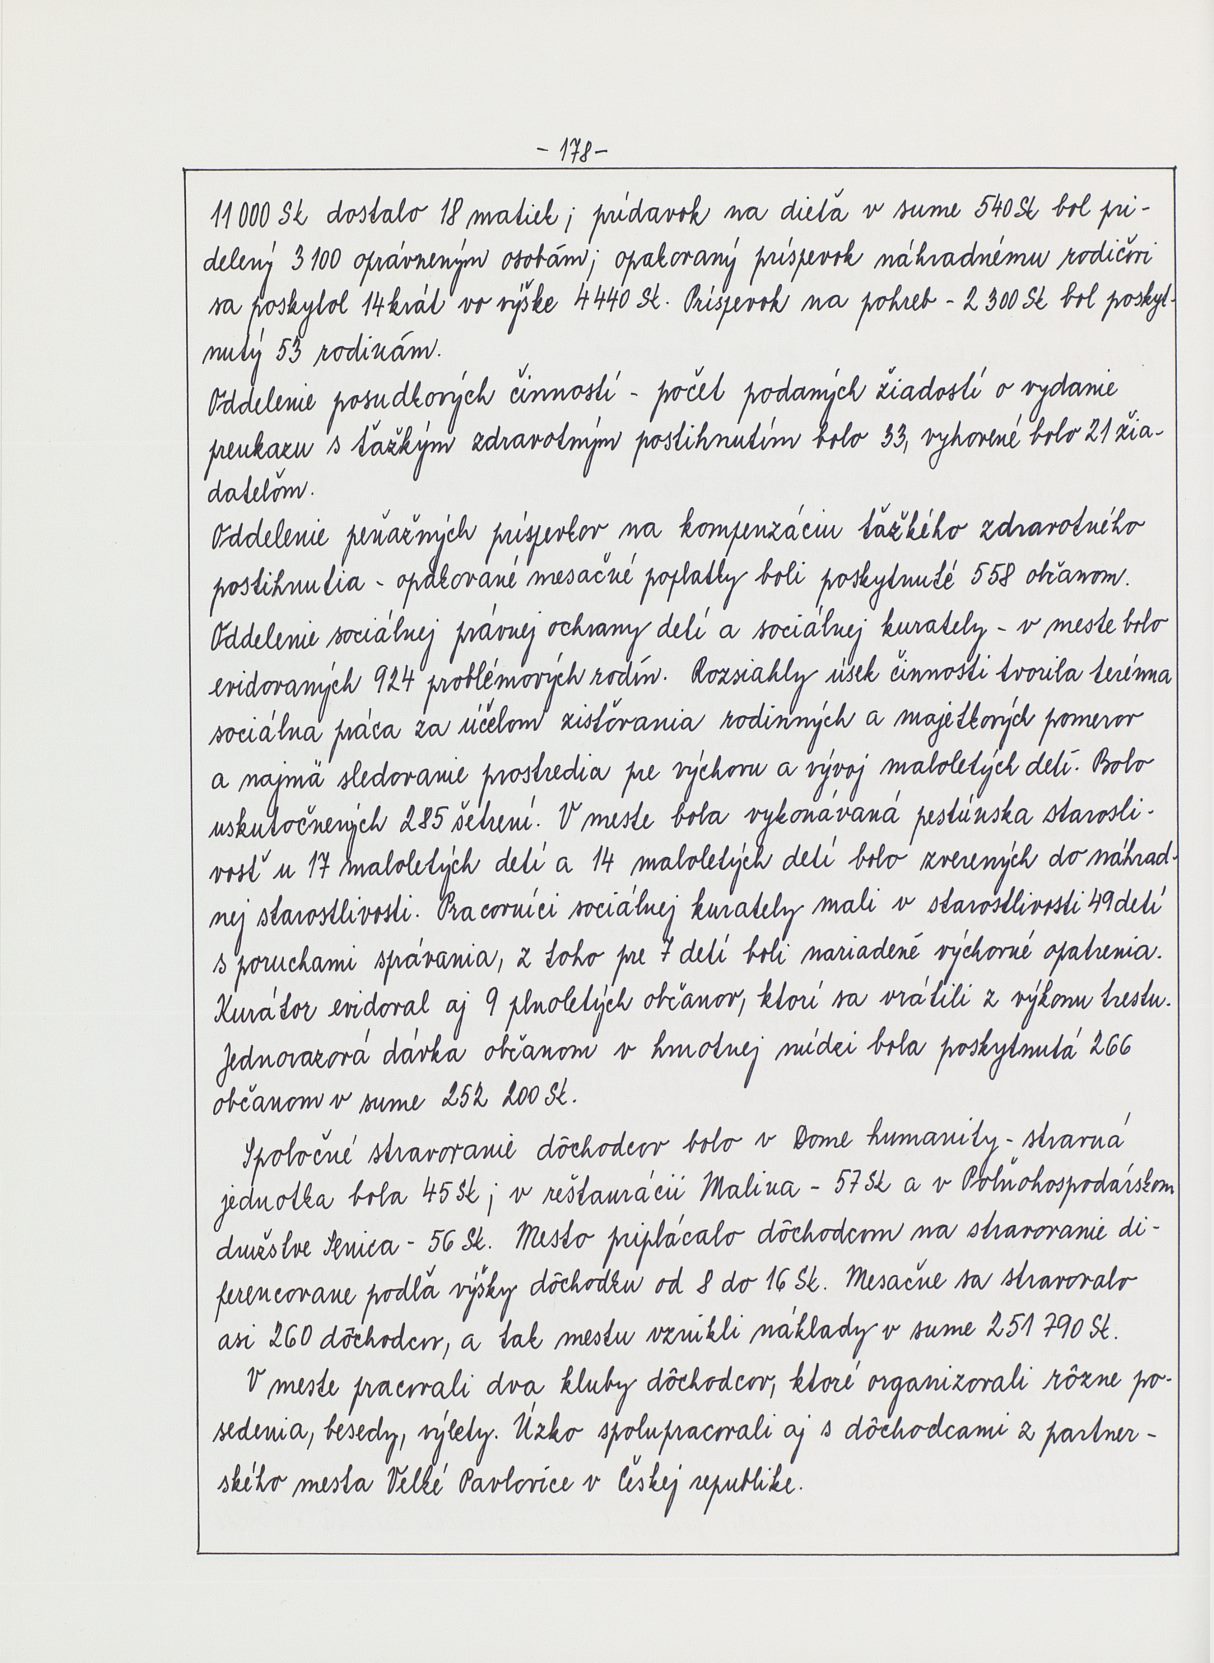 - 178 -
11 000 Sk dostalo 18 matiek; prídavok na dieťa v sume 540 Sk bol pri-
delený 3 100 oprávneným osobám; opakovaný príspevok náhradnému rodičovi
sa poskytol 14 krát vo výške 4 440 Sk. Príspevok na pohreb - 2 300 Sk bol poskyt-
nutý 53 rodinám.
Oddelenie posudkových činností - počet podaných žiadostí o vydanie
preukazu s ťažkým zdravotným postihnutím bolo 33, vyhovené bolo 21 žia-
dateľom.
Oddelenie peňažných príspevkov na kompenzáciu ťažkého zdravotného
postihnutia - opakované mesačné poplatky boli poskytnuté 558 občanom.
Oddelenie sociálnej právnej ochrany detí a sociálnej kurately - v meste bolo
evidovaných 924 problémových rodín. Rozsiahly úsek činnosti tvorila terénna
sociálna práca za účelom zisťovania rodinných a majetkových pomerov
a najmä sledovanie prostredia pre výchovu a vývoj maloletých detí. Bolo
uskutočnených 285 šetrení. V meste bola vykonávaná pestúnska starosli-
vosť u 17 maloletých detí a 14 maloletých detí bolo zverených do náhrad-
nej starostlivosti. Pracovníci sociálnej kurately mali v starostlivosti 49 detí
s poruchami správania, z toho pre 7 detí boli nariadené výchovné opatrenia.
Kurátor evidoval aj 9 plnoletých občanov, ktorí sa vrátili z výkonu trestu.
Jednorazová dávka občanom v hmotnej núdzi bola poskytnutá 266
občanom v sume 252 200 Sk.
Spoločné stravovanie dôchodcov bolo v Dome humanity - stravná
jednotka bola 45 Sk; v reštaurácii Malina - 57 Sk a v Poľnohospodárskom
družstve Senica - 56 Sk. Mesto priplácalo dôchodcom na stravovanie di-
ferencovane podľa výšky dôchodku od 8 do 16 Sk. Mesačne sa stravovalo
asi 260 dôchodcov, a tak mestu vznikli náklady v sume 251 790 Sk.
V meste pracovali dva kluby dôchodcov, ktoré organizovali rôzne po-
sedenia, besedy, výlety. Úzko spolupracovali aj s dôchodcami z partner-
ského mesta Velké Pavlovice v Českej republike.